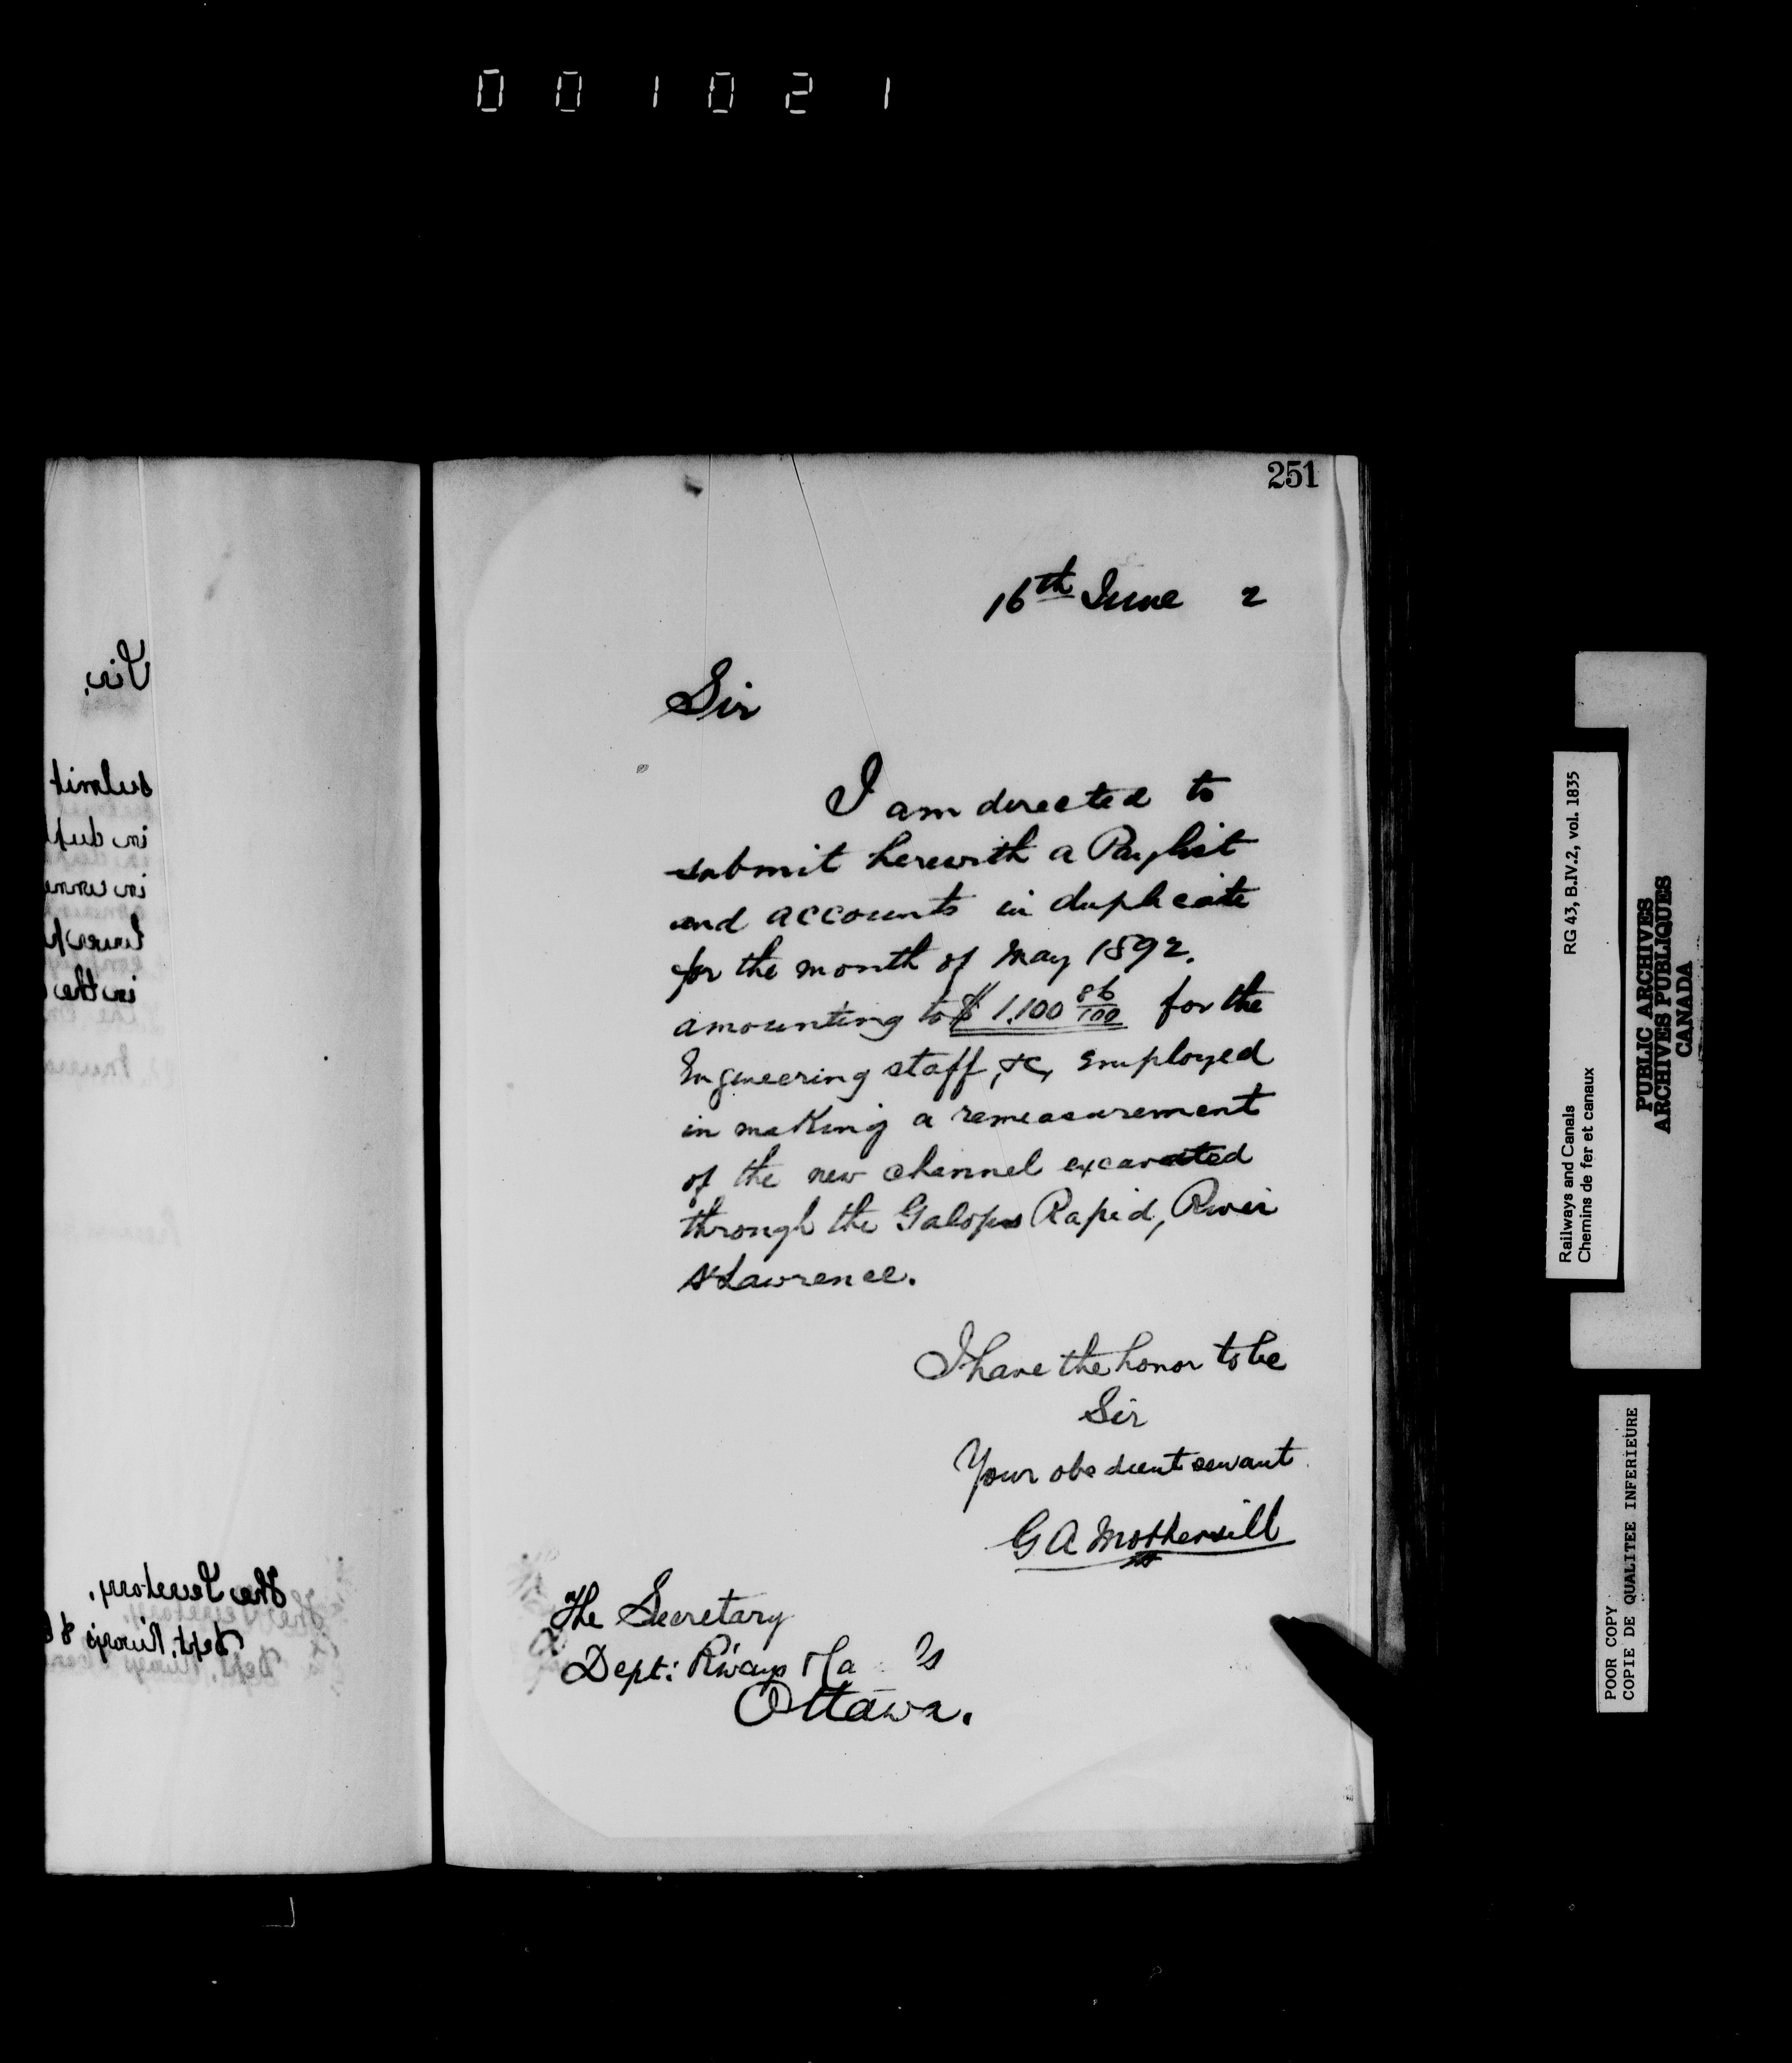 001021
251
16th June 2
Sir
I am directed to
submit herewith a Paylist
and accounts in duplicate
for the month of May 1892.
amounting to $1,100 86/100 for the
Engineering staff, &c, employed
in making a remeasurement
of the new channel excavated
through the Galops Rapid, River
St Lawrence.
I have the honor to be
Sir
Your obedient servant
G A Mothersill
The Secretary
Dept: Rways
Ottawa.
Sir,
submit
in the
The Secretary,
Dept. Rways &
Railways and Canals RG 43, B.IV.2, vol. 1835
Chemins de fer et canaux
PUBLIC ARCHIVES
ARCHIVES PUBLIQUES
CANADA
POOR COPY
COPIE DE QUALITEE INFERIEURE